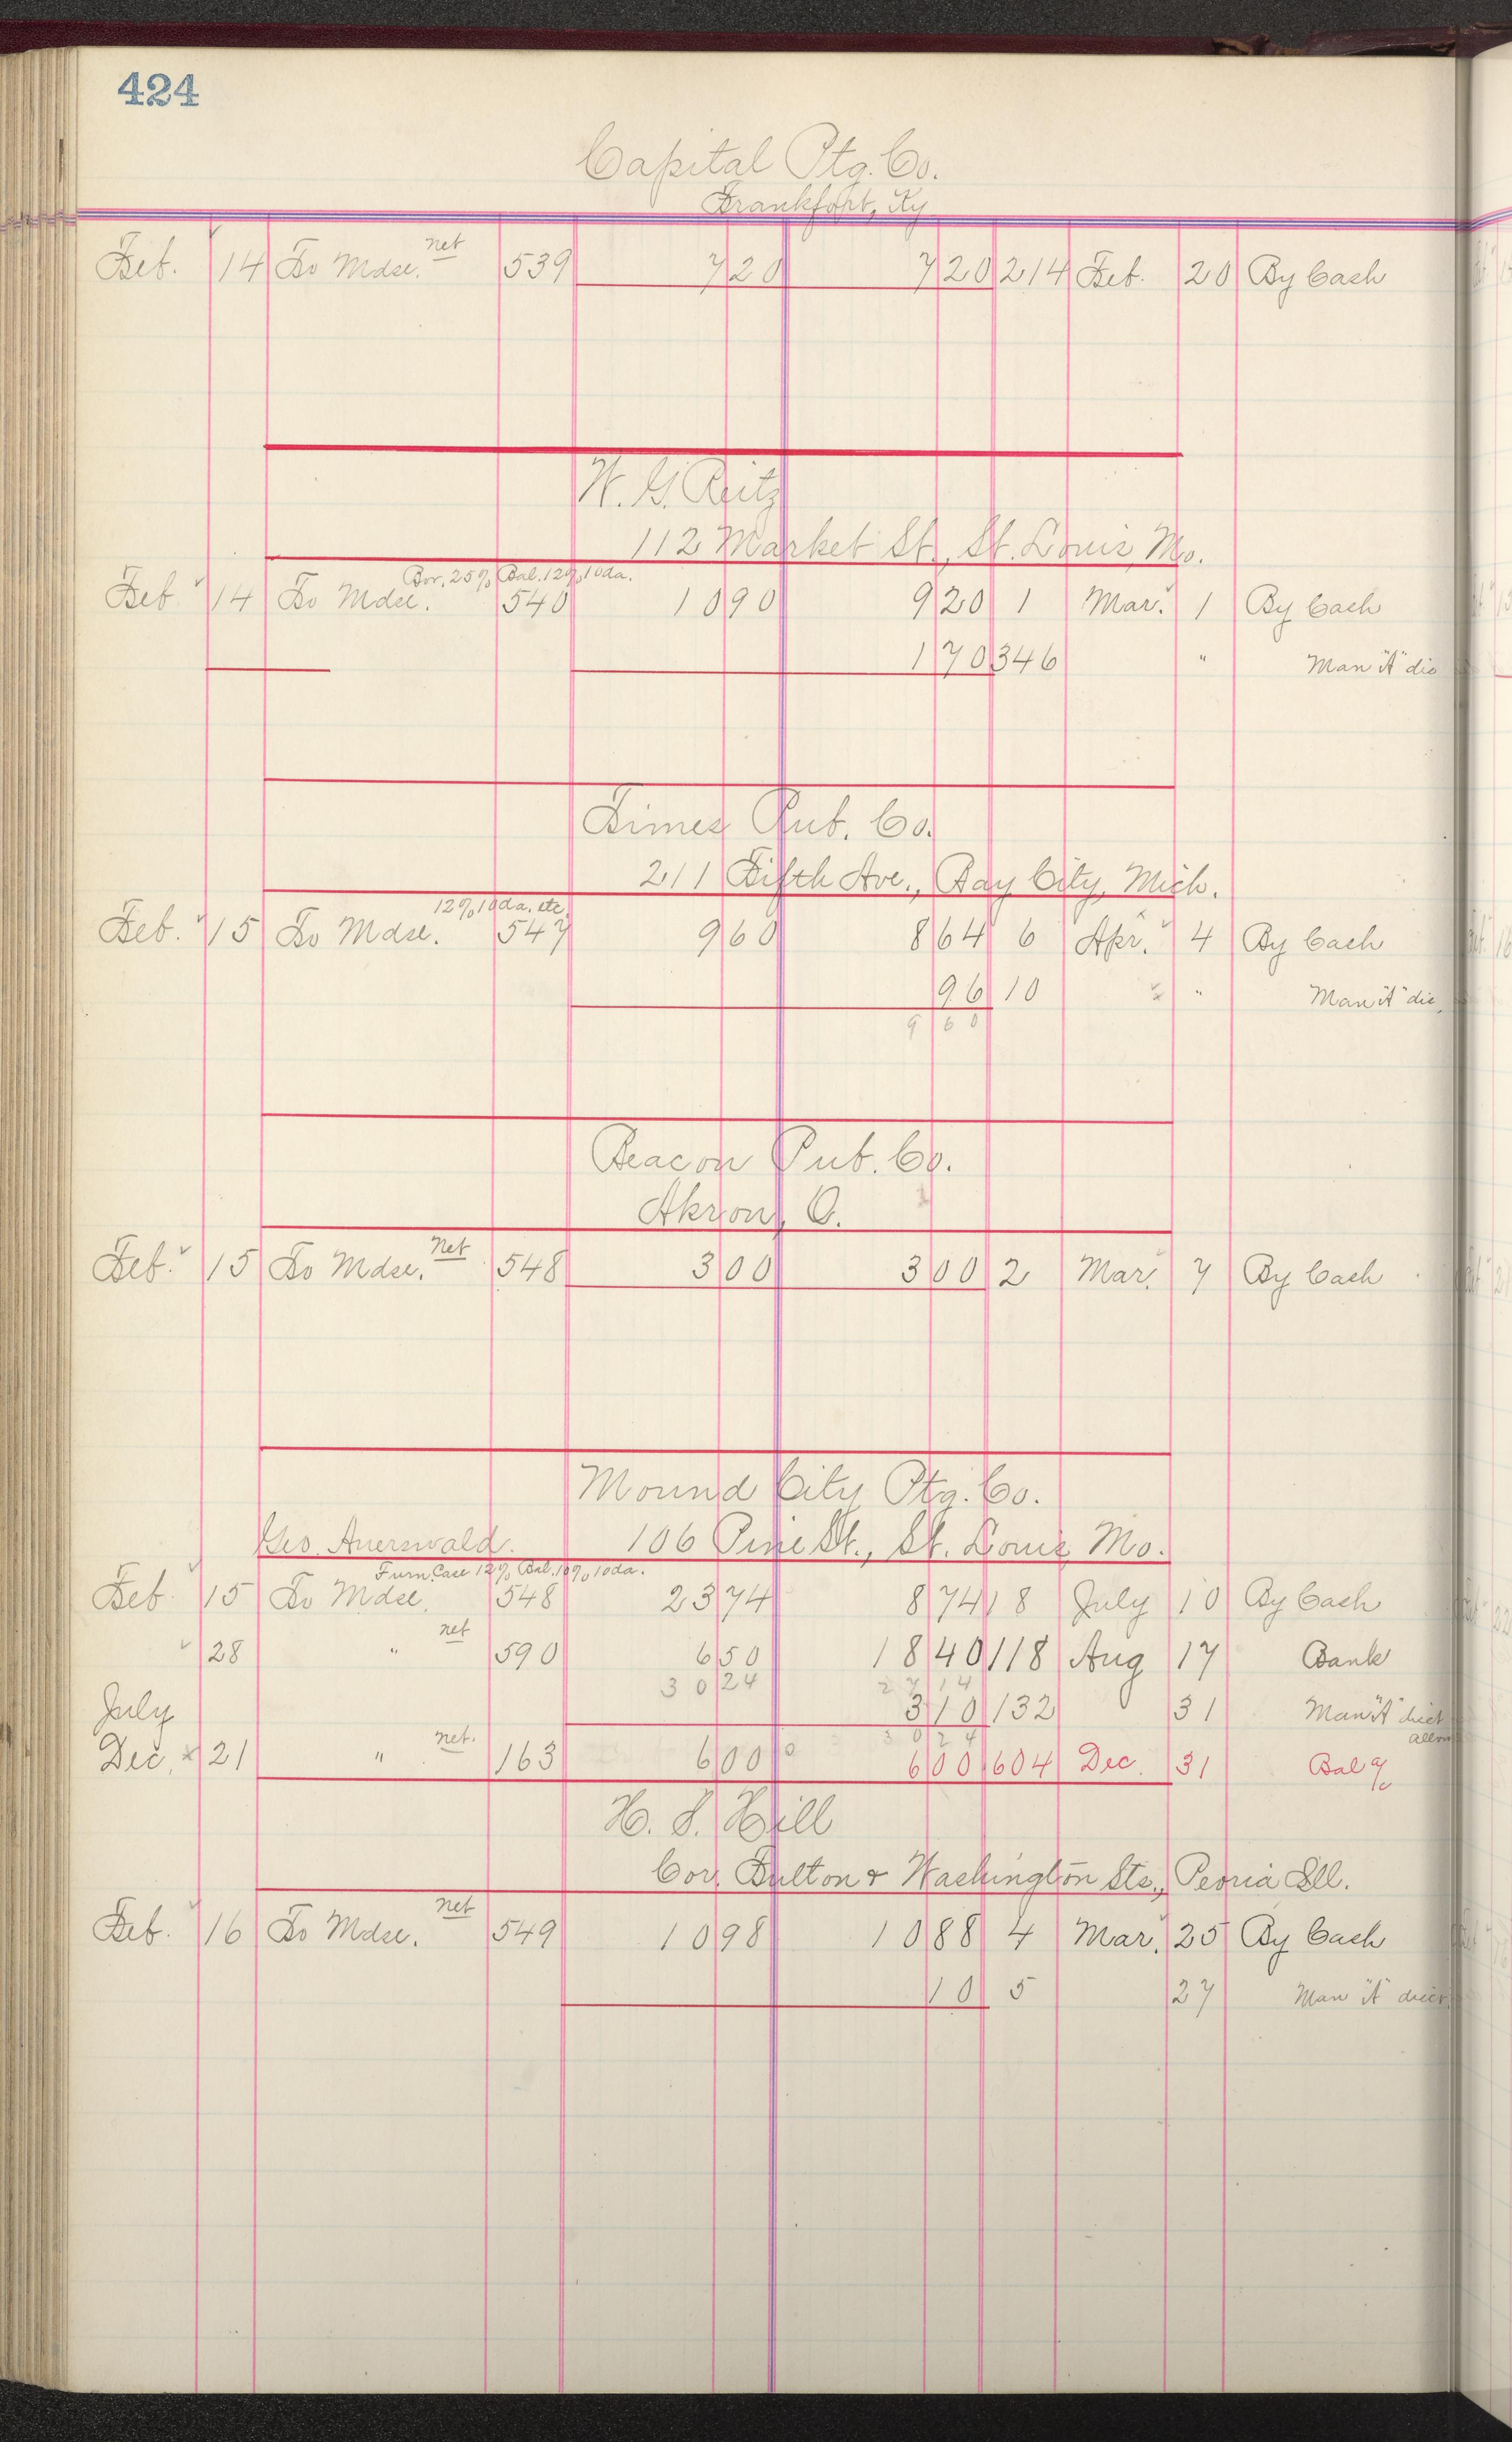 424
Capital Ptg. Co.
Frankfort, Ky
Feb. 14 To Mdse. net 539 7 20 7 20 214 Feb. 20 By Cash
W. G. Reitz
112 Market St., St. Louis, Mo.
Bor. 25% Bal. 12% 10da.
Feb 14 To Mdse. 540 10 90 9 20 1 Mar. 1 By Cash
1 70 346 " Man "A" dis
Times Pub. Co.
211 Fifth Ave., Bay City, Mich.
12% 10da. etc.
Feb. 15 To Mdse. 547 9 60 8 64 6 Apr. 4 By Cash
96 10 " Man "A" dis.
9 60
Beacon Pub. Co.
Akron, O.
Feb. 15 To Mdse. net 548 3 00 3 00 2 Mar. 7 By Cash
Mound City Ptg. Co.
Geo. Auerswald. 106 Pine St., St. Louis, Mo.
Furn. Case 12% Bal. 10% 10da.
Feb 15 To Mdse. 548 23 74 8 74 18 July 10 By Cash
28 " net 590 6 50 18 40 118 Aug 17 Bank
30 24 27 14
July 3 10 132 31 Man "A" disct allow
30 24
Dec. x 21 " net. 163 6 00 6 00 604 Dec. 31 Bal a/c
H. S. Hill
Cor. Fulton & Washington Sts., Peoria Ill.
Feb. 16 To Mdse. net 549 10 98 10 88 4 Mar. 25 By Cash
10 5 27 Man "A" disct